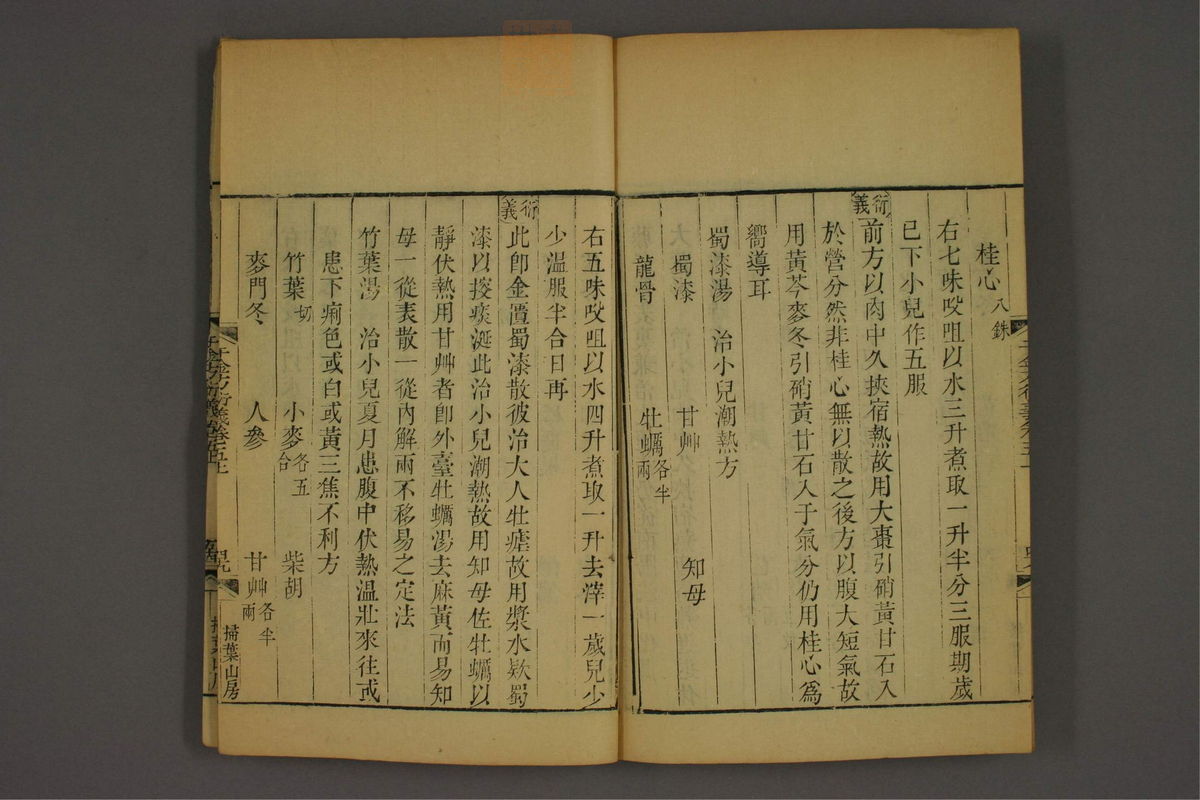 桂心八銖
右七味㕮咀以水三升煮取一升半分三服期歲
已下小兒作五服
衍義
前方以肉中久挾宿熱故用大棗引硝黃甘石入
於營分然非桂心無以散之後方以腹大短氣故
用黃芩麥冬引硝黃甘石入于氣分仍用桂心爲
嚮導耳
蜀漆湯 治小兒潮熱方
蜀漆 甘艸 知母
龍骨 牡蠣各半兩
右五味㕮咀以水四升煮取一升去滓一歲兒少
少温服半合日再
衍義
此卽金匱蜀漆散彼治大人牡瘧故用漿水欵蜀
漆以搜痰涎此治小兒潮熱故用知母佐牡蠣以
靜伏熱用甘艸者卽外臺牡蠣湯去麻黃而易知
母一從表散一從內解兩不移易之定法
竹葉湯 治小兒夏月患腹中伏熱温壯來往或
患下痢色或白或黃三焦不利方
竹葉切 小麥各五合 柴胡
麥門冬 人參 甘艸各半兩
千金方衍義卷五上
掃葉山房